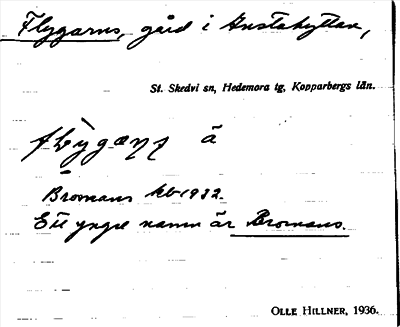 Flygarns, gård i Gustahyttan,
St. Skedvi sn, Hedemora tg, Kopparbergs län.
ä
Bromans kb 1932.
Ett yngre namn är Bromans.
OLLE HILLNER, 1936.